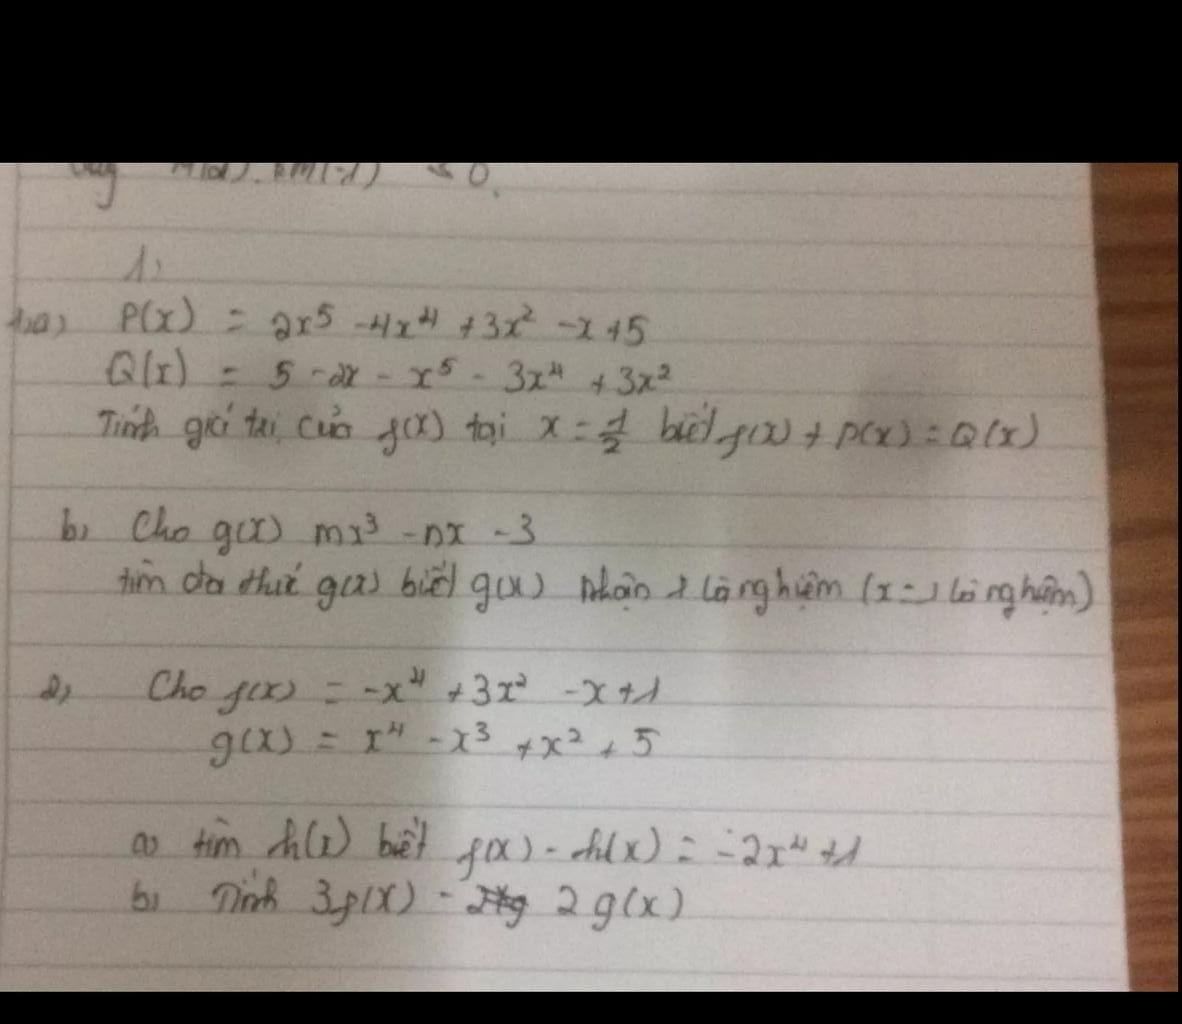 M(2). M(-1) ≤ 0.
1)
a) P(x) = 2x⁵ -4x⁴ +3x² -x +5
Q(x) = 5 -2x - x⁵ - 3x⁴ +3x²
Tính giá trị của f(x) tại x = 1/2 biết f(x) + P(x) = Q(x)
b) Cho g(x) mx³ -nx -3
tìm đa thức g(x) biết g(x) nhận là nghiệm (x = là nghiệm)
2) Cho f(x) = -x⁴ +3x² -x+1
g(x) = x⁴ -x³ +x² + 5
a) tìm h(x) biết f(x) - h(x) = -2x⁴ +1
b) Tính 3f(x) - 2g(x)